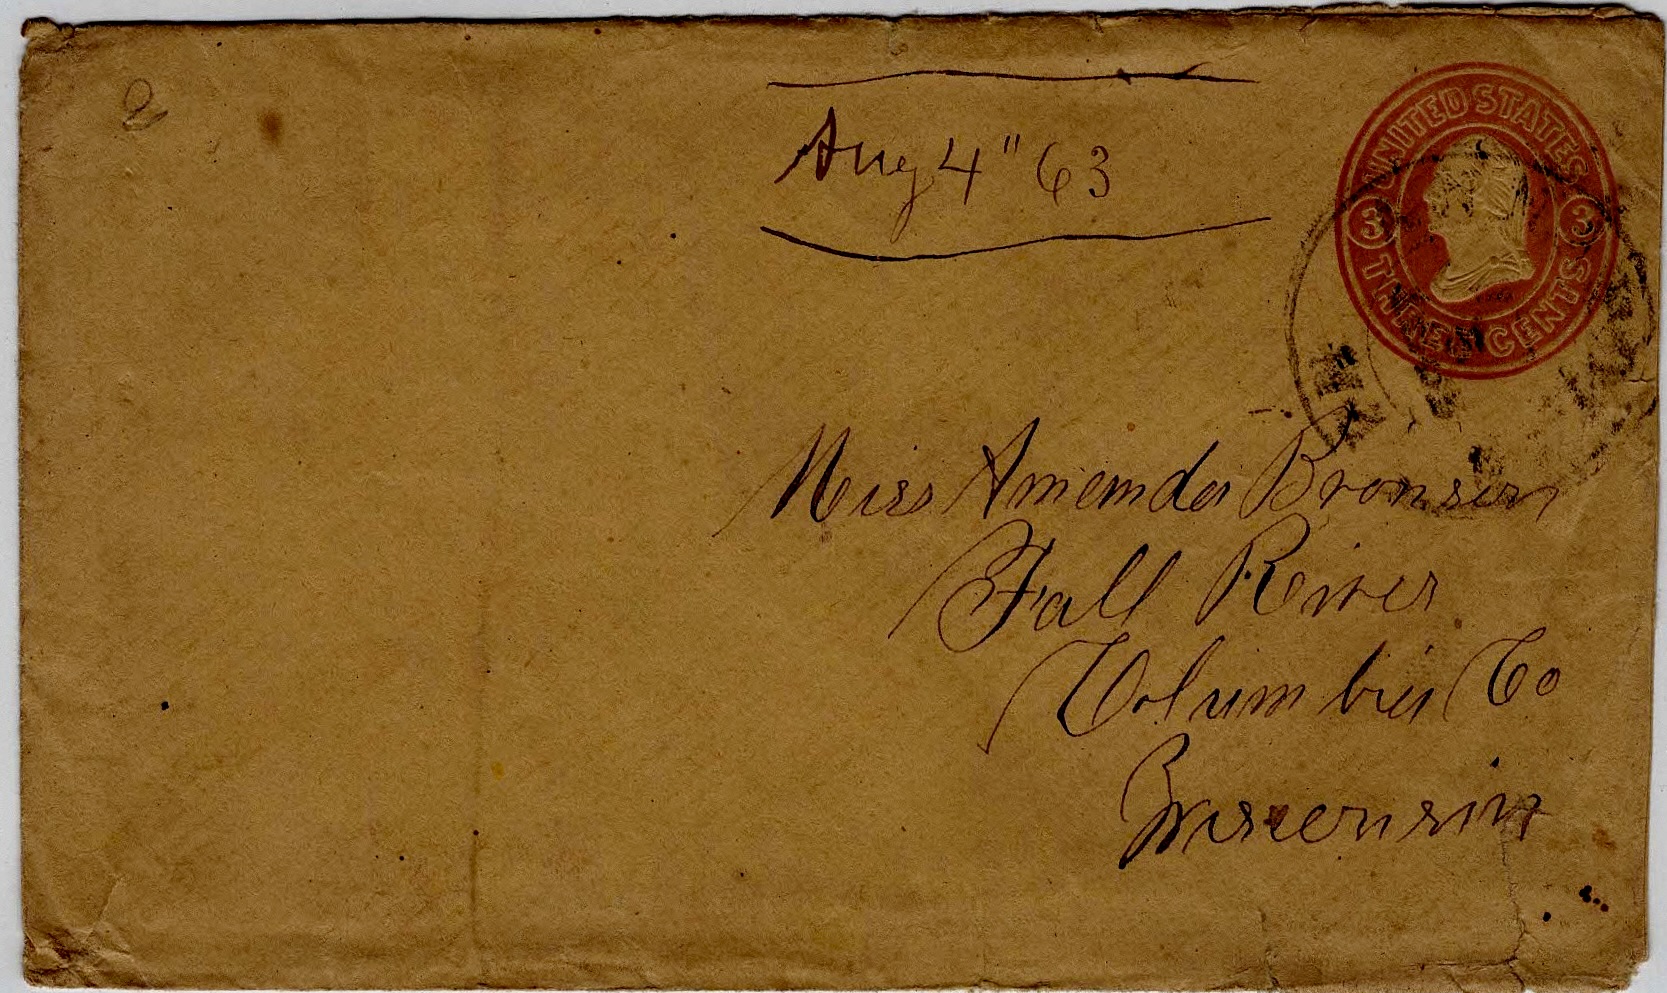 2
Aug 4" 63
UNITED STATES
3 3
THREE CENTS
Miss Amanda Bronson
Fall River
Columbia Co
Wisconsin